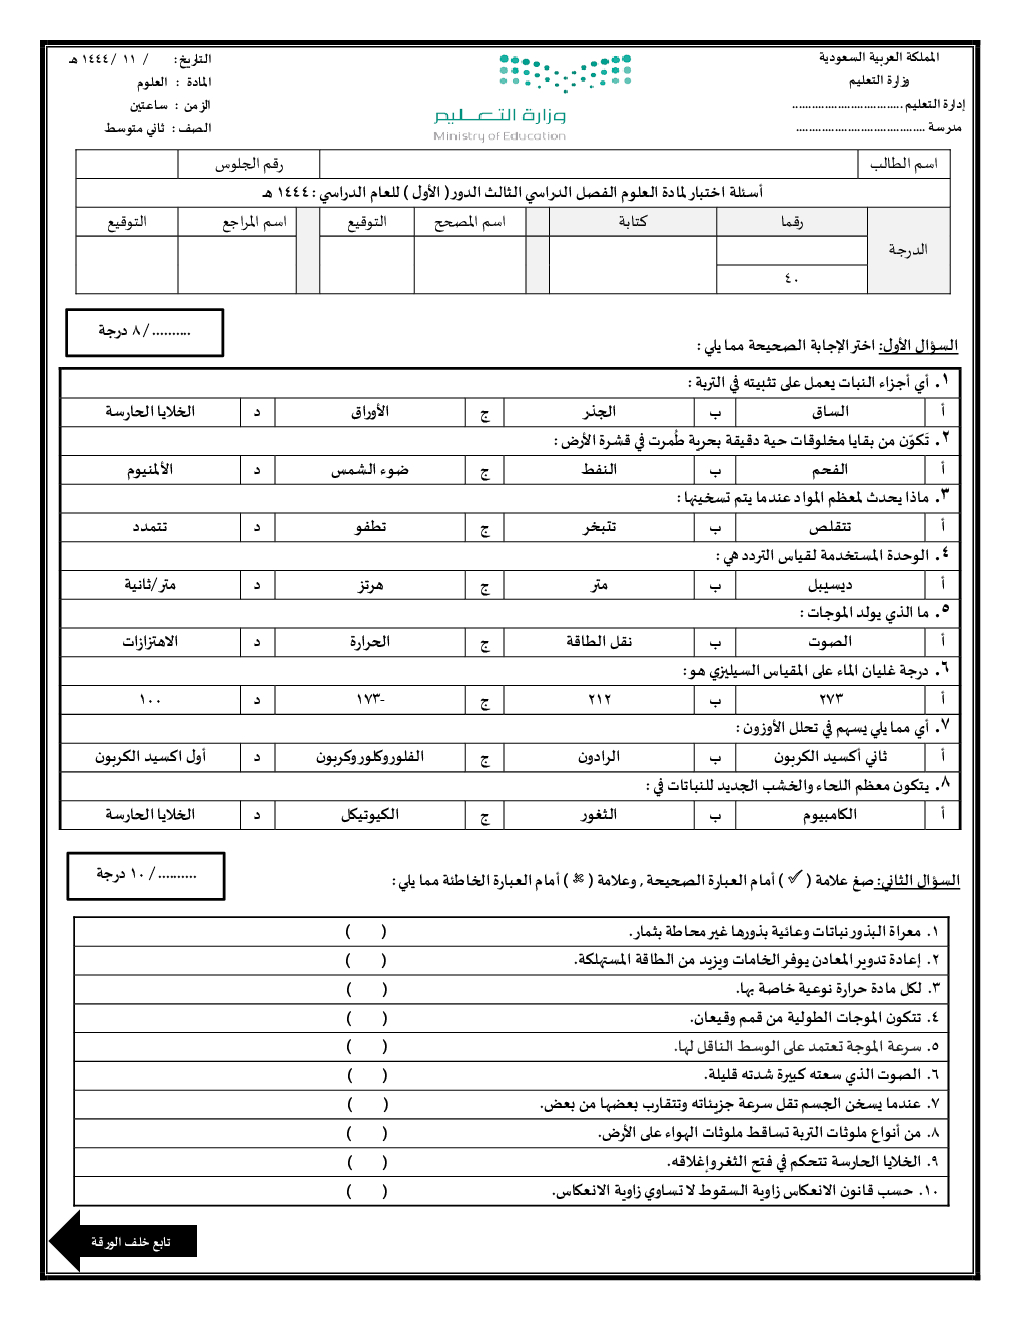 المملكة العربية السعودية
وزارة التعليم
إدارة التعليم ..................................
مدرسة ........................................
وزارة التعليم
Ministry of Education
التاريخ : / ١١ / ١٤٤٤ هـ
المادة : العلوم
الزمن : ساعتين
الصف : ثاني متوسط
اسم الطالب رقم الجلوس
أسئلة اختبار لمادة العلوم الفصل الدراسي الثالث الدور ( الأول ) للعام الدراسي : ١٤٤٤ هـ
الدرجة رقما كتابة اسم المصحح التوقيع اسم المراجع التوقيع
٤٠
.......... / ٨ درجة
السؤال الأول: اختر الإجابة الصحيحة مما يلي :
١. أي أجزاء النبات يعمل على تثبيته في التربة :
أ الساق ب الجذر ج الأوراق د الخلايا الحارسة
٢. تَكوّن من بقايا مخلوقات حية دقيقة بحرية طُمرت في قشرة الأرض :
أ الفحم ب النفط ج ضوء الشمس د الألمنيوم
٣. ماذا يحدث لمعظم المواد عندما يتم تسخينها :
أ تتقلص ب تتبخر ج تطفو د تتمدد
٤. الوحدة المستخدمة لقياس التردد هي :
أ ديسيبل ب متر ج هرتز د متر/ثانية
٥. ما الذي يولد الموجات :
أ الصوت ب نقل الطاقة ج الحرارة د الاهتزازات
٦. درجة غليان الماء على المقياس السيليزي هو :
أ ٢٧٣ ب ٢١٢ ج -١٧٣ د ١٠٠
٧. أي مما يلي يسهم في تحلل الأوزون :
أ ثاني أكسيد الكربون ب الرادون ج الفلوروكلوروكربون د أول اكسيد الكربون
٨. يتكون معظم اللحاء والخشب الجديد للنباتات في :
أ الكامبيوم ب الثغور ج الكيوتيكل د الخلايا الحارسة
.......... / ١٠ درجة
السؤال الثاني: صغ علامة ( ✓ ) أمام العبارة الصحيحة , وعلامة ( ✗ ) أمام العبارة الخاطئة مما يلي :
١. معراة البذور نباتات وعائية بذورها غير محاطة بثمار. ( )
٢. إعادة تدوير المعادن يوفر الخامات ويزيد من الطاقة المستهلكة. ( )
٣. لكل مادة حرارة نوعية خاصة بها. ( )
٤. تتكون الموجات الطولية من قمم وقيعان. ( )
٥. سرعة الموجة تعتمد على الوسط الناقل لها. ( )
٦. الصوت الذي سعته كبيرة شدته قليلة. ( )
٧. عندما يسخن الجسم تقل سرعة جزيئاته وتتقارب بعضها من بعض. ( )
٨. من أنواع ملوثات التربة تساقط ملوثات الهواء على الأرض. ( )
٩. الخلايا الحارسة تتحكم في فتح الثغر وإغلاقه. ( )
١٠. حسب قانون الانعكاس زاوية السقوط لا تساوي زاوية الانعكاس. ( )
تابع خلف الورقة